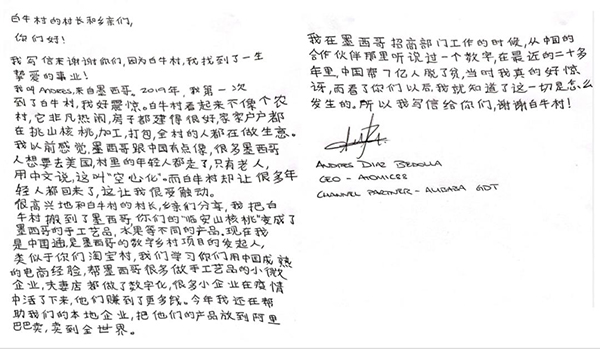 白牛村的村长和乡亲们,
你们好!
我写信来谢谢你们,因为白牛村,我找到了一生
挚爱的事业!
我叫Andres,来自墨西哥。2019年,我第一次
到了白牛村,我好震惊。白牛村看起来不像个农
村,它非凡热闹,房子都建得很好,家家户户都
在挑山核桃,加工,打包,全村的人都在做生意。
我以前感觉,墨西哥跟中国有点像,很多墨西哥
人想要去美国,村里的年轻人都走了,只有老人,
用中文说,这叫“空心化”。而白牛村却让很多年
轻人都回来了,这让我很受触动。
很高兴地和白牛村的村长,乡亲们分享,我把白
牛村搬到了墨西哥,你们的“临安山核桃”变成了
墨西哥的手工艺品,水果等不同的产品。现在我
是中国通,是墨西哥的数字乡村项目的发起人,
类似于你们淘宝村,我们学习你们用中国成熟
的电商经验,帮墨西哥很多做手工艺品的小微
企业,夫妻店都做了数字化,很多小企业在疫情
中活了下来,他们赚到了更多钱。今年我还在帮
助我们的本地企业,把他们的产品放到阿里
巴巴卖,卖到全世界。
我在墨西哥招商部门工作的时候,从中国的
合作伙伴那里听说过一个数字,在最近的二十多
年里,中国帮7亿人脱了贫,当时我真的好惊
讶,而看了你们以后我就知道了这一切是怎么
发生的。所以我写信给你们,谢谢白牛村!
ANDRES DIAZ BEDOLLA
CEO - ATOMIC88
CHANNEL PARTNER - ALIBABA GDT